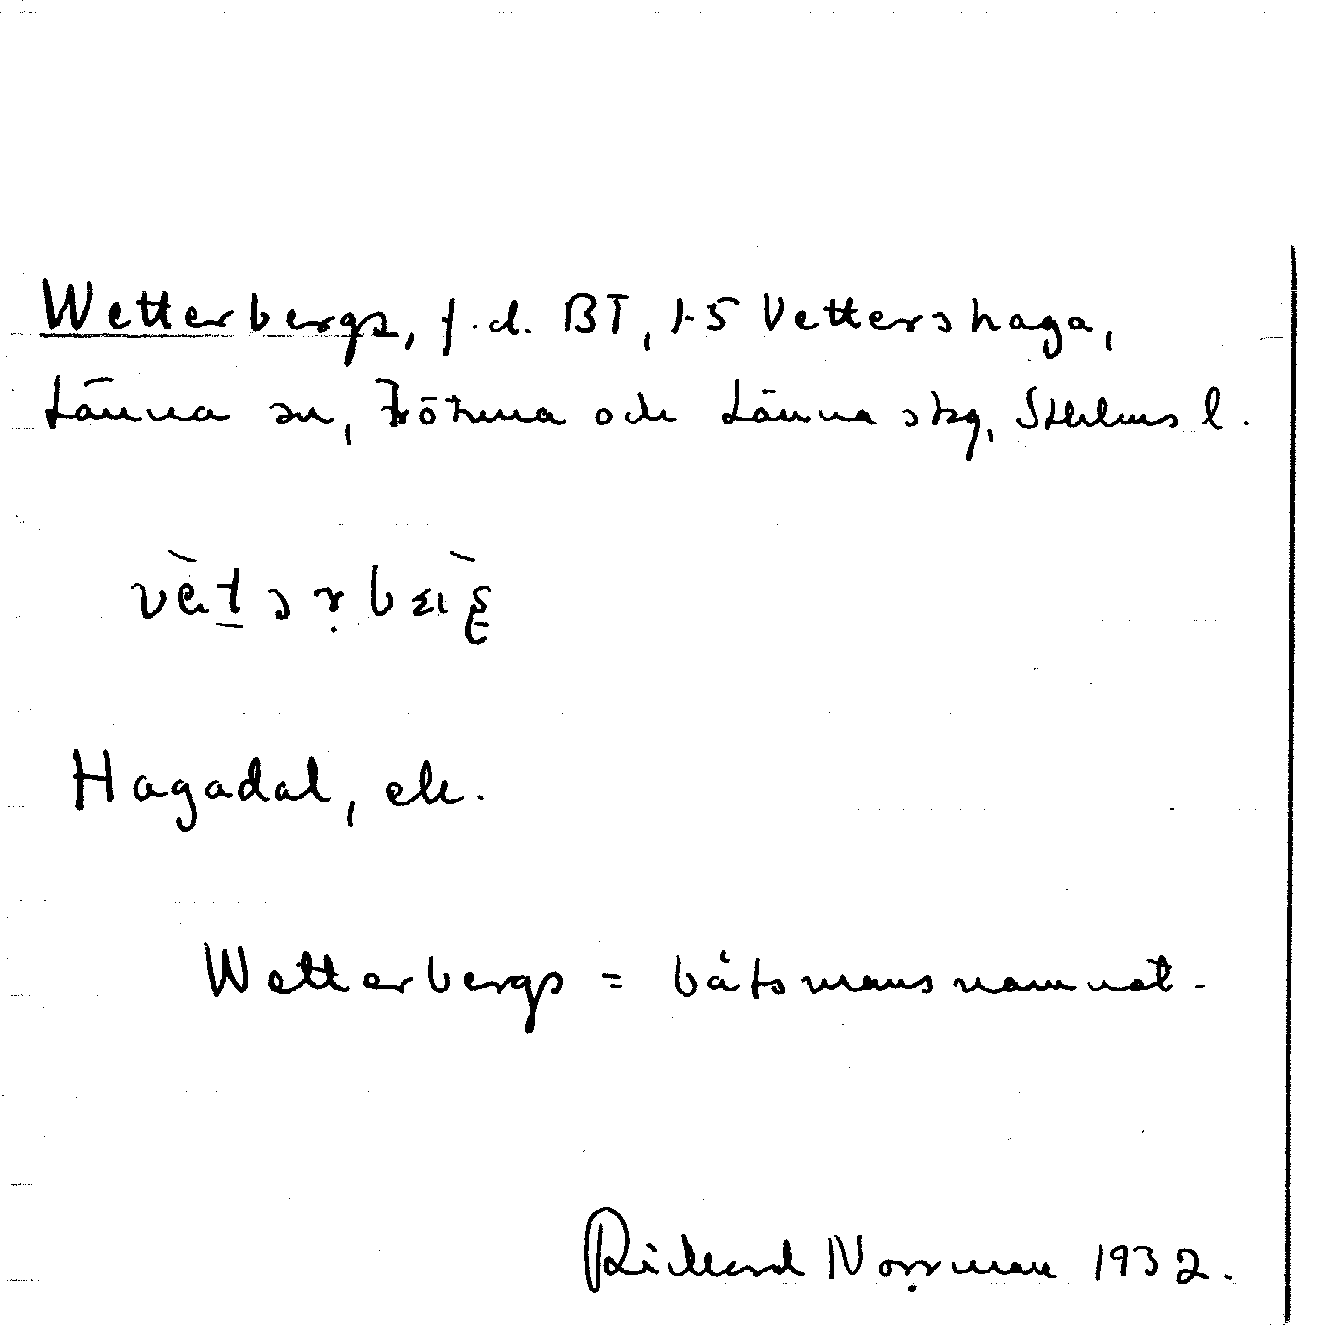 Wetterbergs, f.d. BT, 1-5 Vettershaga,
Länna sn, Frötuna och Länna skg, Sthlms l.
Hagadal, ele.
Wetterbergs = båtsmansnamnet.
Rickard Norrman 1932.